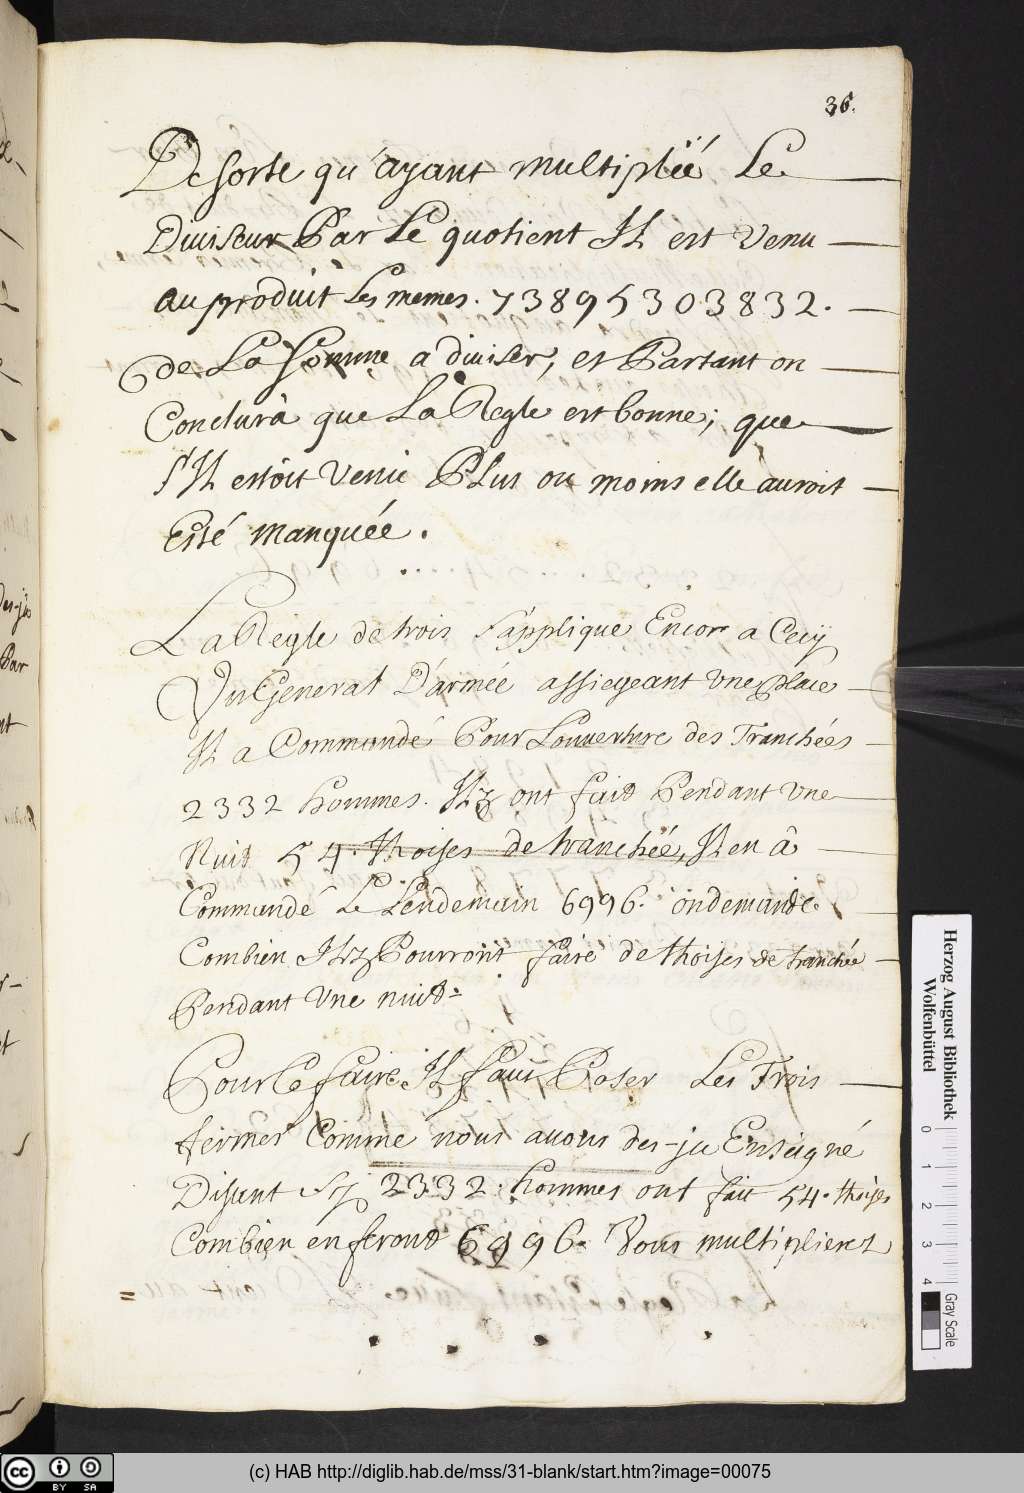 36.
De sorte qu'ayant multiplié Le
Diuiseur Par Le quotient Il est Venu
au produit Les memes. 73895303832.
de La Somme a diuiser, et Partant on
Conclura que La Regle est bonne; que
s'Il estoit Venu Plus ou moins elle auroit
Esté manquée.
La Regle de trois s'applique Encor a Cecÿ
Vn General D'armée assiegeant Vne Place
Il a Commandé Pour Louuerture des Tranchées
2332 hommes. Ilz ont fait Pendant Vne
Nuit 54. thoises de tranchée, Il en à
Commandé Le Lendemain 6996. on demande
Combien Ilz Pourront faire de thoises de tranchée
Pendant Vne nuit
Pour Le faire Il faut Poser Les Trois
termes Comme nous auons des-ja Enseigné
Disant Sy 2332. hommes ont fait 54. thoises
Combien en feront 6996. Vous multiplierez
Herzog August Bibliothek
Wolfenbüttel
0 1 2 3 4
Gray Scale
cc BY SA
(c) HAB http://diglib.hab.de/mss/31-blank/start.htm?image=00075